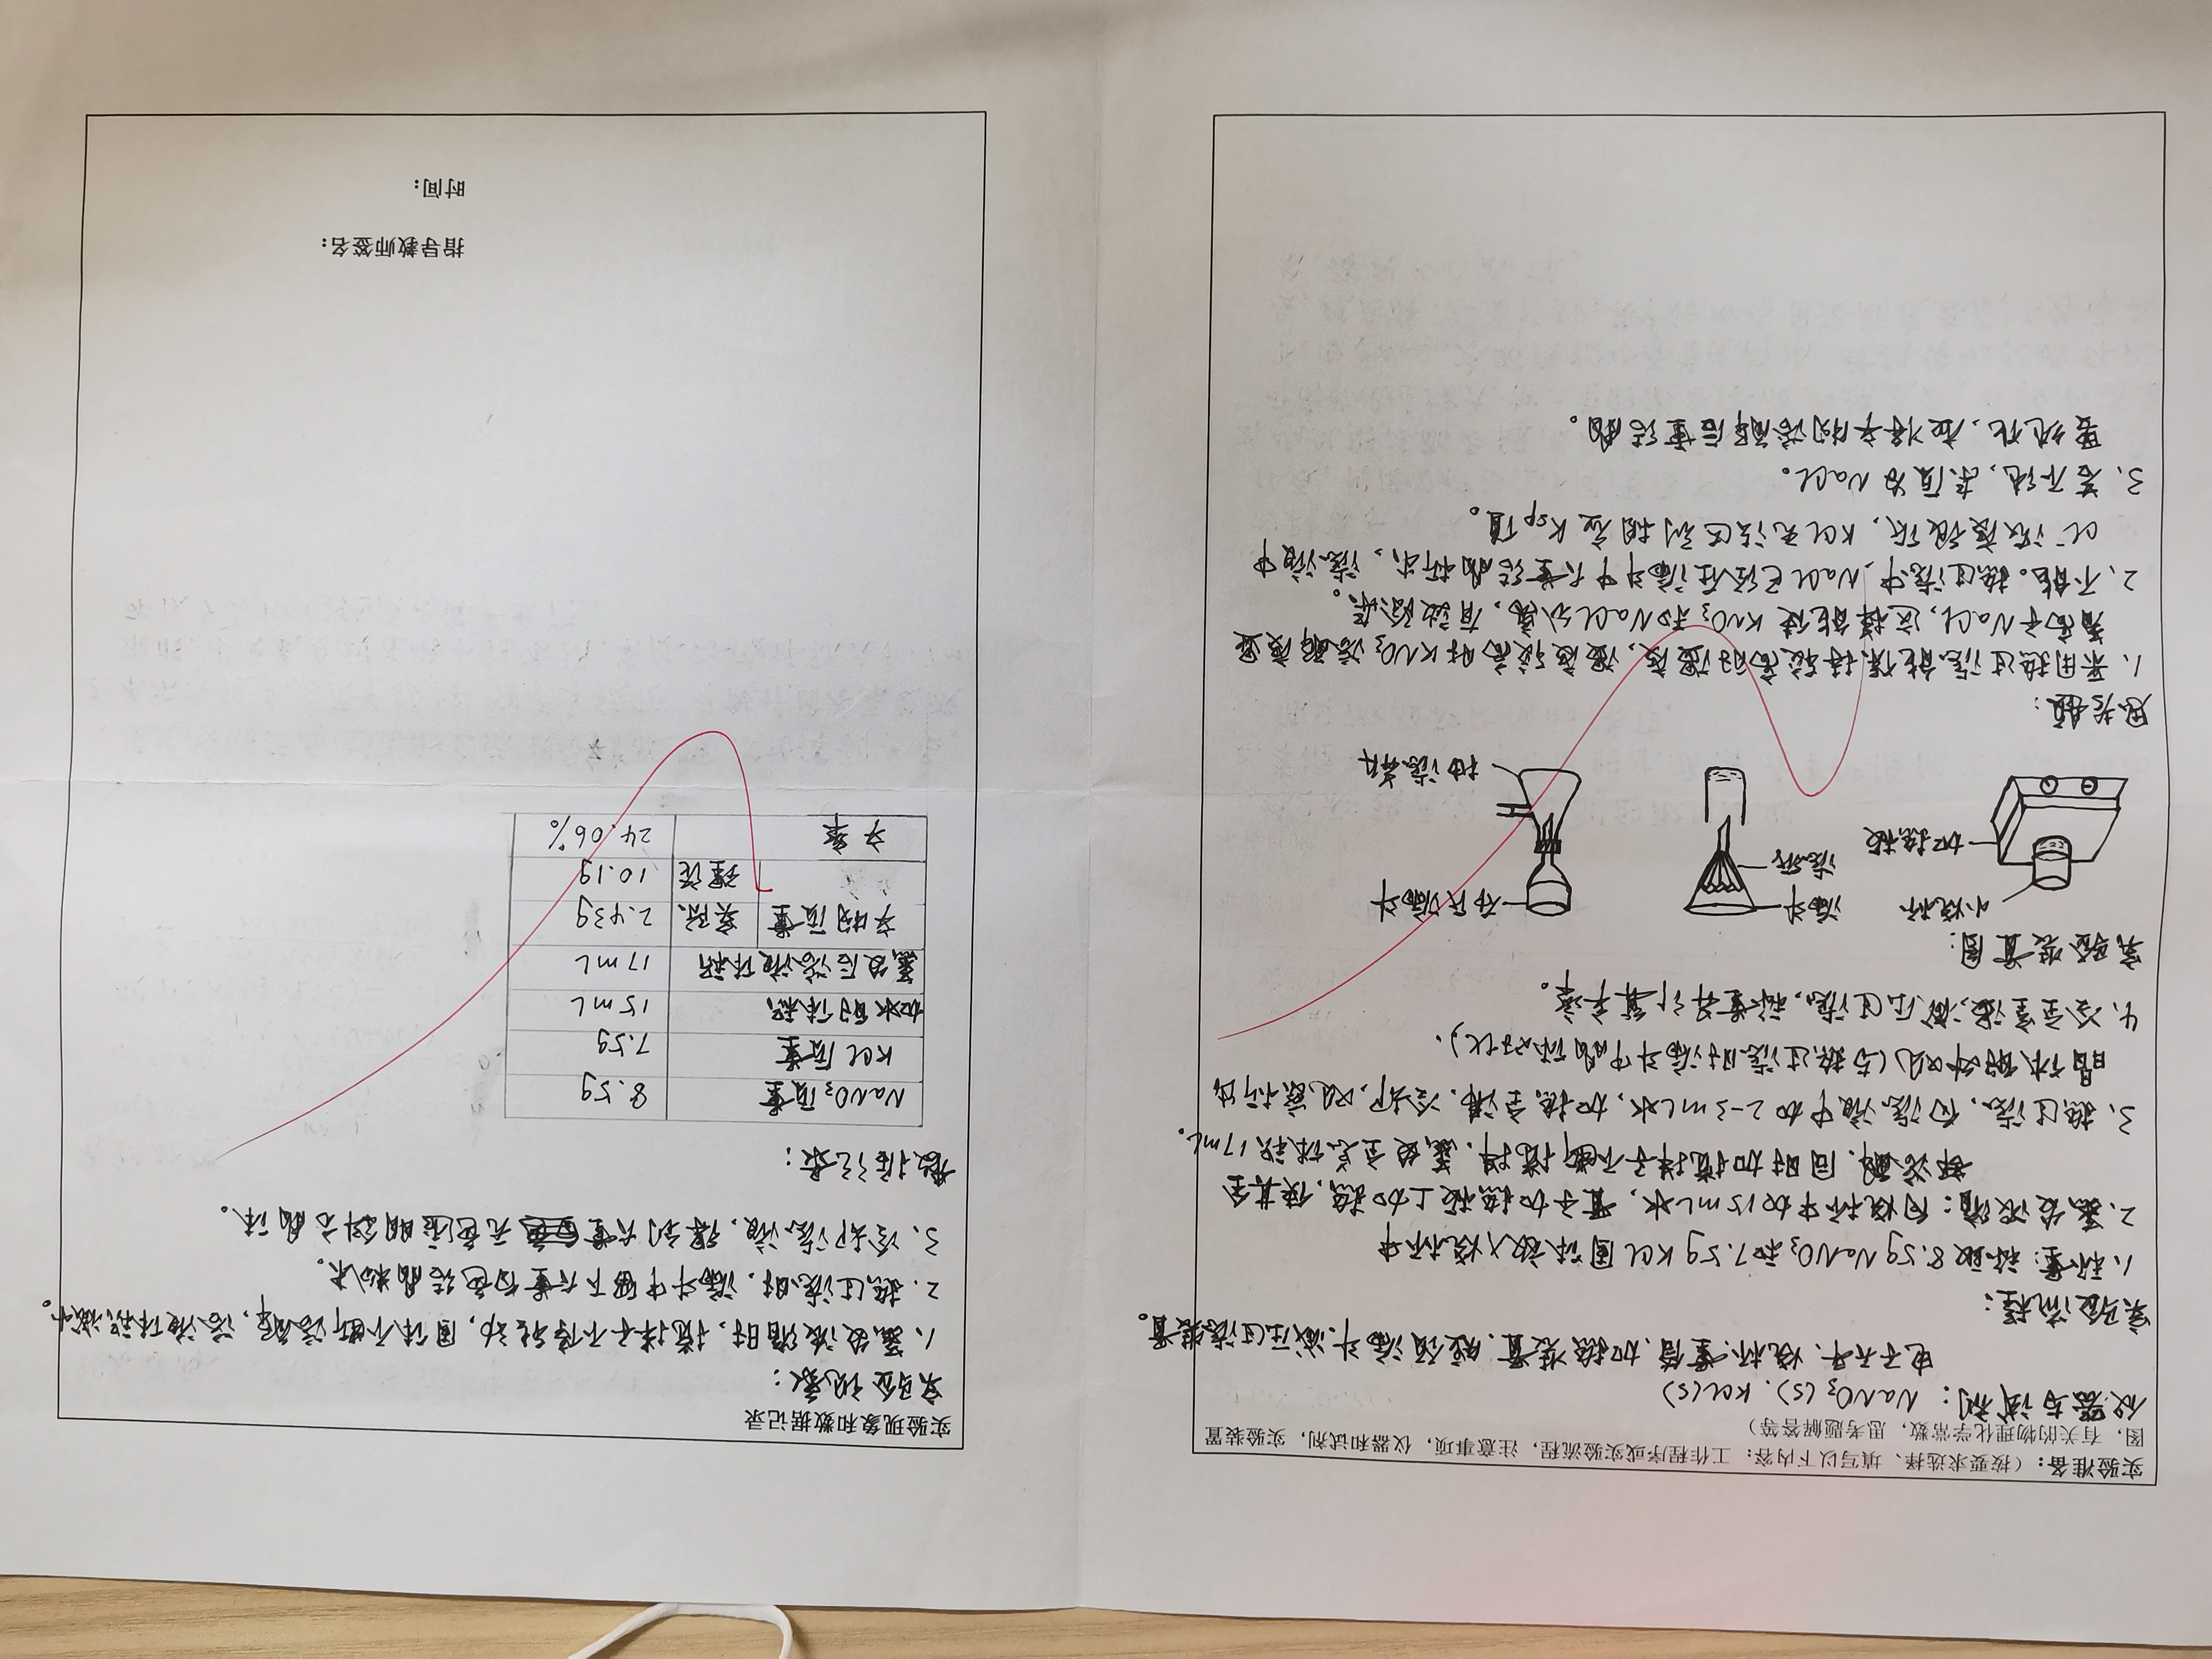 实验准备：（按要求选择、填写以下内容：工作程序或实验流程，注意事项，仪器和试剂，实验装置
图，有关的物理化学常数，思考题解答等）
仪器与试剂：NaNO₃(s)、KCl(s)
电子天平、烧杯、量筒、加热装置、短颈漏斗、减压过滤装置。
实验流程：
1、称量：称取8.5g NaNO₃和7.5g KCl固体放入烧杯中
2、蒸发浓缩：向烧杯中加15mL水，置于加热板上加热，使其全
部溶解，同时加搅拌子不断搅拌，蒸发至总体积17mL。
3、热过滤，向滤液中加2-3mL水，加热至沸，冷却，观察析出
晶体的外观(与热过滤时漏斗中晶体对比)。
4、冷至室温，减压过滤，称量并计算产率。
实验装置图：
小烧杯
加热板
漏斗
滤纸
布氏漏斗
抽滤瓶
思考题：
1、采用热过滤能保持较高的温度，温度较高时KNO₃溶解度显
著高于NaCl，这样能使KNO₃和NaCl分离，有效除杂。
2、不能。热过滤中，NaCl已经在漏斗中大量结晶析出，滤液中
Cl⁻浓度很低，KCl无法达到相应Ksp值。
3、若不纯，杂质为NaCl。
要纯化，应将产物溶解后重结晶。
实验现象和数据记录
实验现象：
1、蒸发浓缩时，搅拌子不停转动，固体不断溶解，溶液体积减小。
2、热过滤时，漏斗中留下大量白色结晶粉末。
3、冷却滤液，得到大量无色透明针状晶体。
数据记录：
NaNO₃质量 8.5g
KCl质量 7.5g
加水的体积 15mL
蒸发后溶液体积 17mL
产物质量 实际 2.43g
理论 10.1g
产率 24.06%
指导教师签名：
时间：